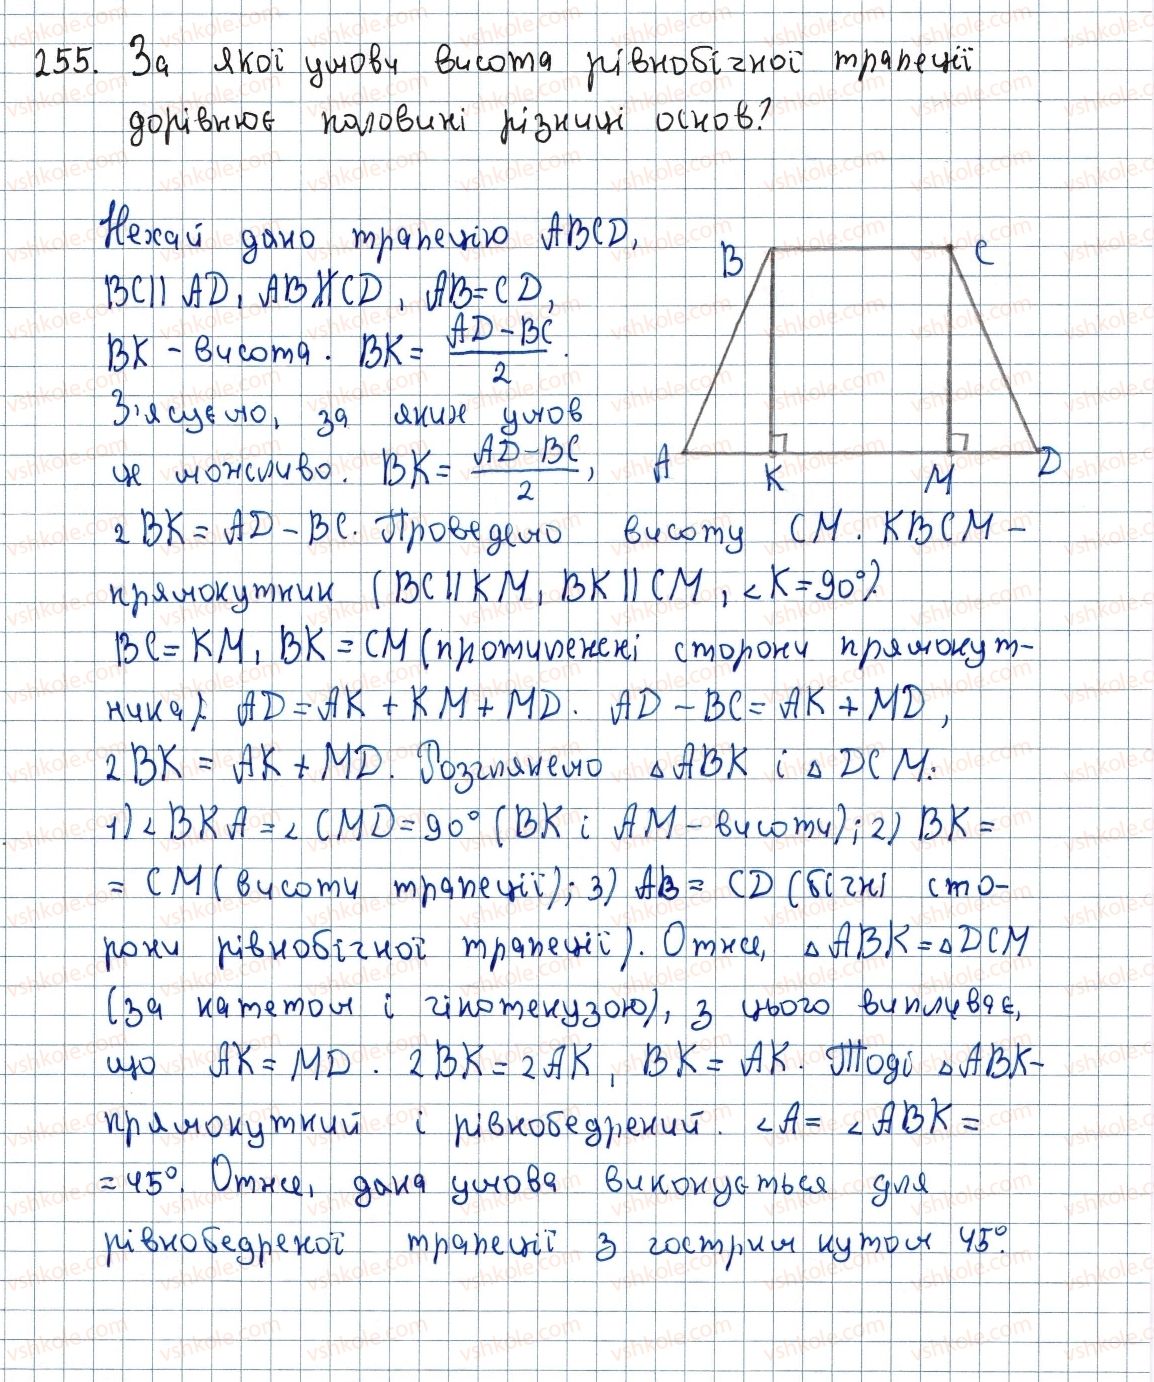 255. За якої умови висота рівнобічної трапеції
дорівнює половині різниці основ?
Нехай дано трапецію ABCD,
BC || AD, AB ∦ CD, AB = CD,
BK - висота. BK = (AD - BC)/2.
З'ясуємо, за яких умов
це можливо. BK = (AD - BC)/2,
2BK = AD - BC. Проведемо висоту CM. KBCM -
прямокутник (BC || KM, BK || CM, ∠K = 90°).
BC = KM, BK = CM (протилежні сторони прямокут-
ника). AD = AK + KM + MD. AD - BC = AK + MD,
2BK = AK + MD. Розглянемо △ABK і △DCM:
1) ∠BKA = ∠CMD = 90° (BK і AM - висоти); 2) BK =
= CM (висоти трапеції); 3) AB = CD (бічні сто-
рони рівнобічної трапеції). Отже, △ABK = △DCM
(за катетом і гіпотенузою), з цього випливає,
що AK = MD. 2BK = 2AK, BK = AK. Тоді △ABK -
прямокутний і рівнобедрений. ∠A = ∠ABK =
= 45°. Отже, дана умова виконується для
рівнобедреної трапеції з гострим кутом 45°.
B C
A K M D
vshkole.com